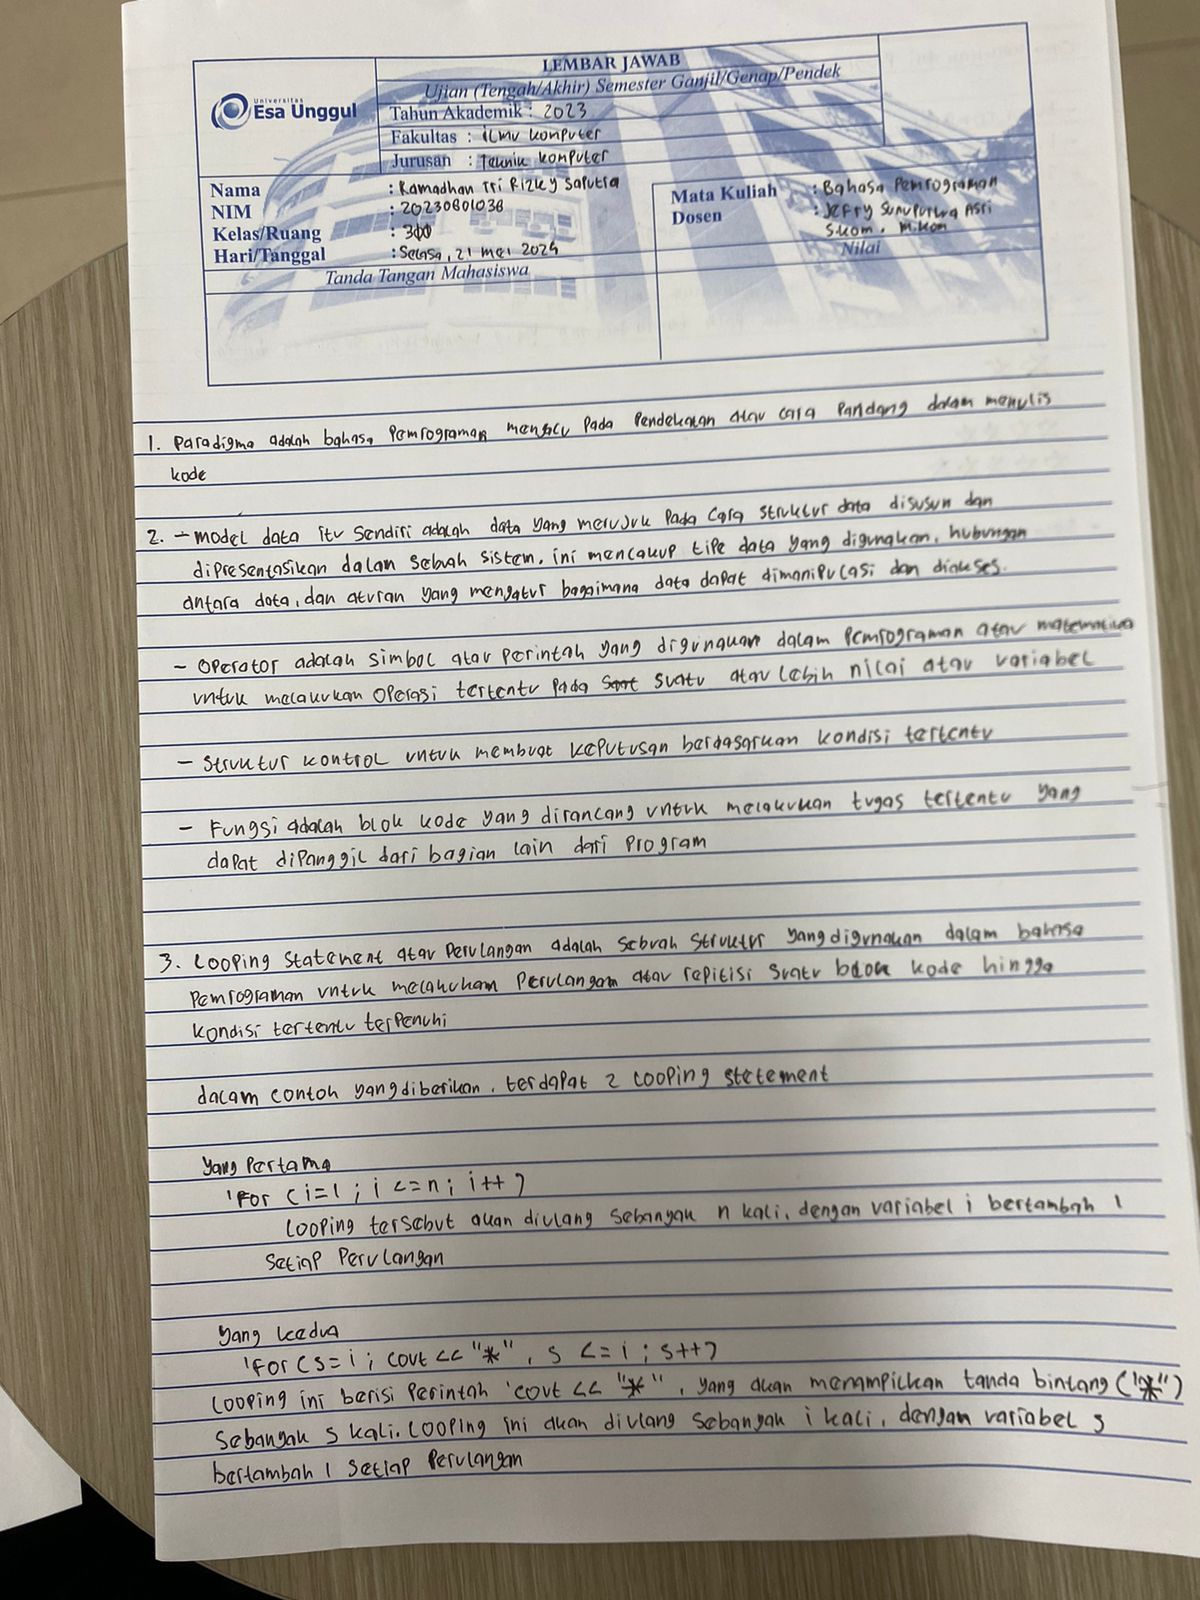 LEMBAR JAWAB
Ujian (Tengah/Akhir) Semester Ganjil/Genap/Pendek
Universitas
Esa Unggul
Tahun Akademik : 2023
Fakultas : Ilmu Komputer
Jurusan : Teknik Komputer
Nama : Ramadhan Tri Rizky Saputra
NIM : 20230801038
Kelas/Ruang : 300
Hari/Tanggal : Selasa, 21 Mei 2024
Mata Kuliah : Bahasa Pemrograman
Dosen : Jefry Sunupurwa Asri
S.kom. M.kom
Tanda Tangan Mahasiswa
Nilai
1. Paradigma adalah bahasa pemrograman mengacu pada pendekatan atau cara pandang dalam menulis
kode
2. - Model data itu sendiri adalah data yang merujuk pada cara struktur data disusun dan
dipresentasikan dalam sebuah sistem. ini mencakup tipe data yang digunakan, hubungan
antara data, dan aturan yang mengatur bagaimana data dapat dimanipulasi dan diakses.
- Operator adalah simbol atau perintah yang digunakan dalam pemrograman atau matematika
untuk melakukan operasi tertentu pada suatu atau lebih nilai atau variabel
- Struktur kontrol untuk membuat keputusan berdasarkan kondisi tertentu
- Fungsi adalah blok kode yang dirancang untuk melakukan tugas tertentu yang
dapat dipanggil dari bagian lain dari program
3. Looping statement atau perulangan adalah sebuah struktur yang digunakan dalam bahasa
pemrograman untuk melakukan perulangan atau repitisi suatu blok kode hingga
kondisi tertentu terpenuhi
dalam contoh yang diberikan, terdapat 2 looping stetement
Yang Pertama
'For (i=1 ; i <=n; i++)
Looping tersebut akan diulang sebanyak n kali, dengan variabel i bertambah 1
setiap perulangan
Yang kedua
'For (s=i ; cout << "*", s <= i ; s++)
Looping ini berisi perintah 'cout << "*", yang akan menampilkan tanda bintang ("*")
sebanyak s kali. Looping ini akan diulang sebanyak i kali, dengan variabel s
bertambah 1 setiap perulangan